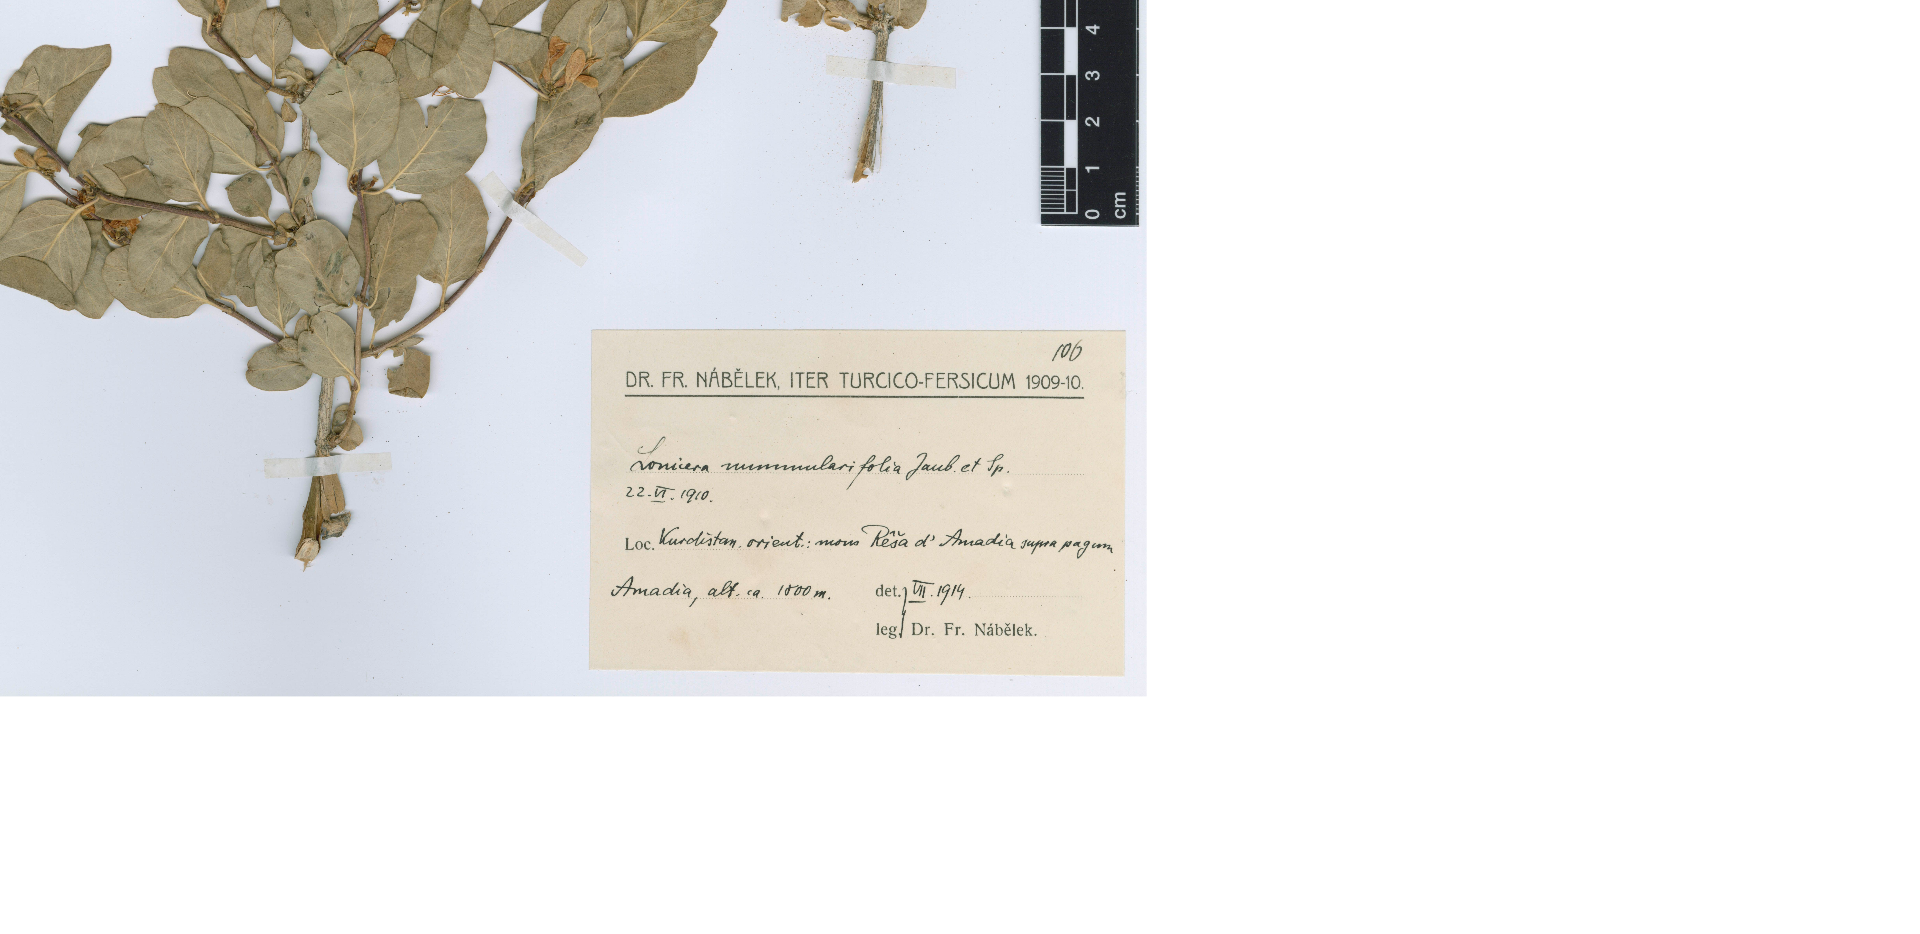 4
3
2
1
0
cm
106
DR. FR. NÁBĚLEK, ITER TURCICO-FERSICUM 1909-10.
Lonicera nummularifolia Jaub. et Sp.
22.VI.1910.
Loc. Kurdistan. orient.: mons Rêša d' Amadia supra pagum
Amadia, alt. ca. 1800 m. det. VII.1914.
leg. Dr. Fr. Nábělek.